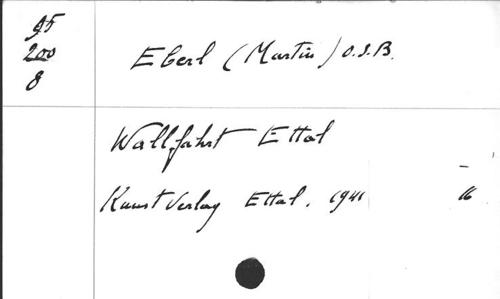 95
200
8
Eberl (Martin) O.S.B.
Wallfahrt Ettal
Kunst Verlag Ettal. 1941
16